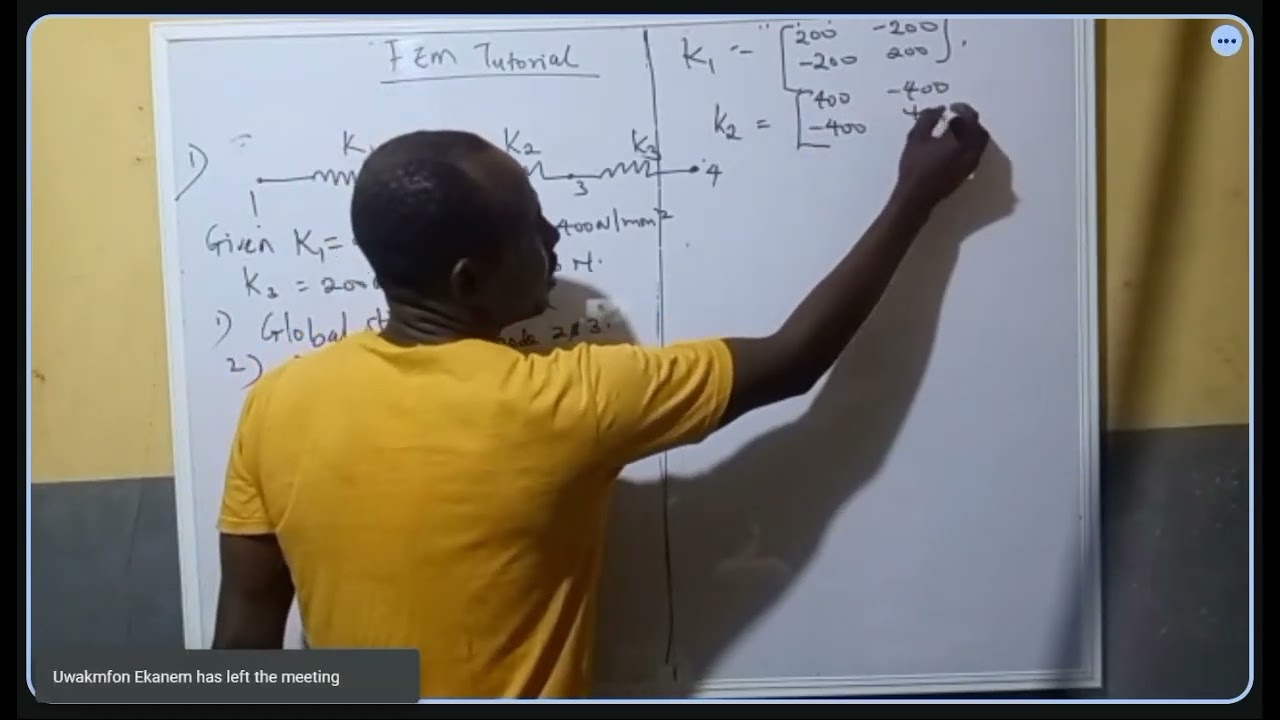 FEM Tutorial
1)
K₂
K3
1
3
4
Given K₁=
400N/mm²
K₃ = 200
1) Global
node 2 & 3.
2)
K₁ = [200 -200
-200 200].
K₂ = [400 -400
-400
Uwakmfon Ekanem has left the meeting